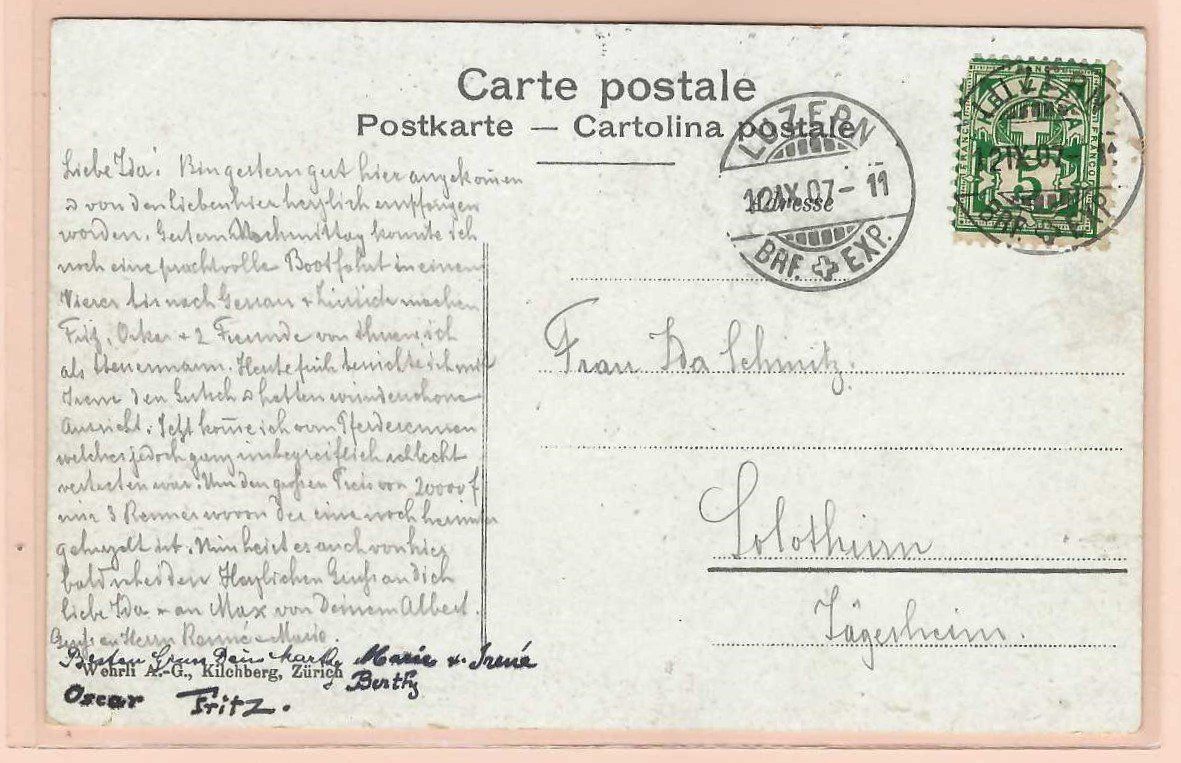 Carte postale
Postkarte — Cartolina postale
Adresse
LUZERN
12.IX.07-11
BRF. EXP.
FRANCO
5
FRANCO
LUZERN
12.IX.07-11
BRF. EXP.
Liebe Ida! Bin gestern gut hier angekom̅en
& von den Lieben hier herzlich empfangen
worden. Gestern Nachmittag kon̅te ich
noch eine prachtvolle Bootfahrt in einem
Vierer bis nach Gersau & zurück machen
Fritz, Oskar + 2 Freunde von ihnen, ich
als Steuermann. Heute früh besuchte ich mit
Irene den Gütsch & hatten wunderschöne
Aussicht. Jetzt kom̅e ich vom Pferderennen
welches jedoch ganz unbegreiflich schlecht
war. Um den großen Preis von 20000 f
nur 3 Renner wovon der eine noch herunter
ist. Nun heisst es auch von hier
bald scheiden. Herzlichen Gruss an dich
liebe Ida & an Max von Deinem Albert.
Gruss an Herrn
Besten Gruss Marie & Irene
Wehrli A.-G., Kilchberg, Zürich
Berthy
Oscar Fritz.
Frau Ida Schmitz.
Solothurn
Jägerheim.